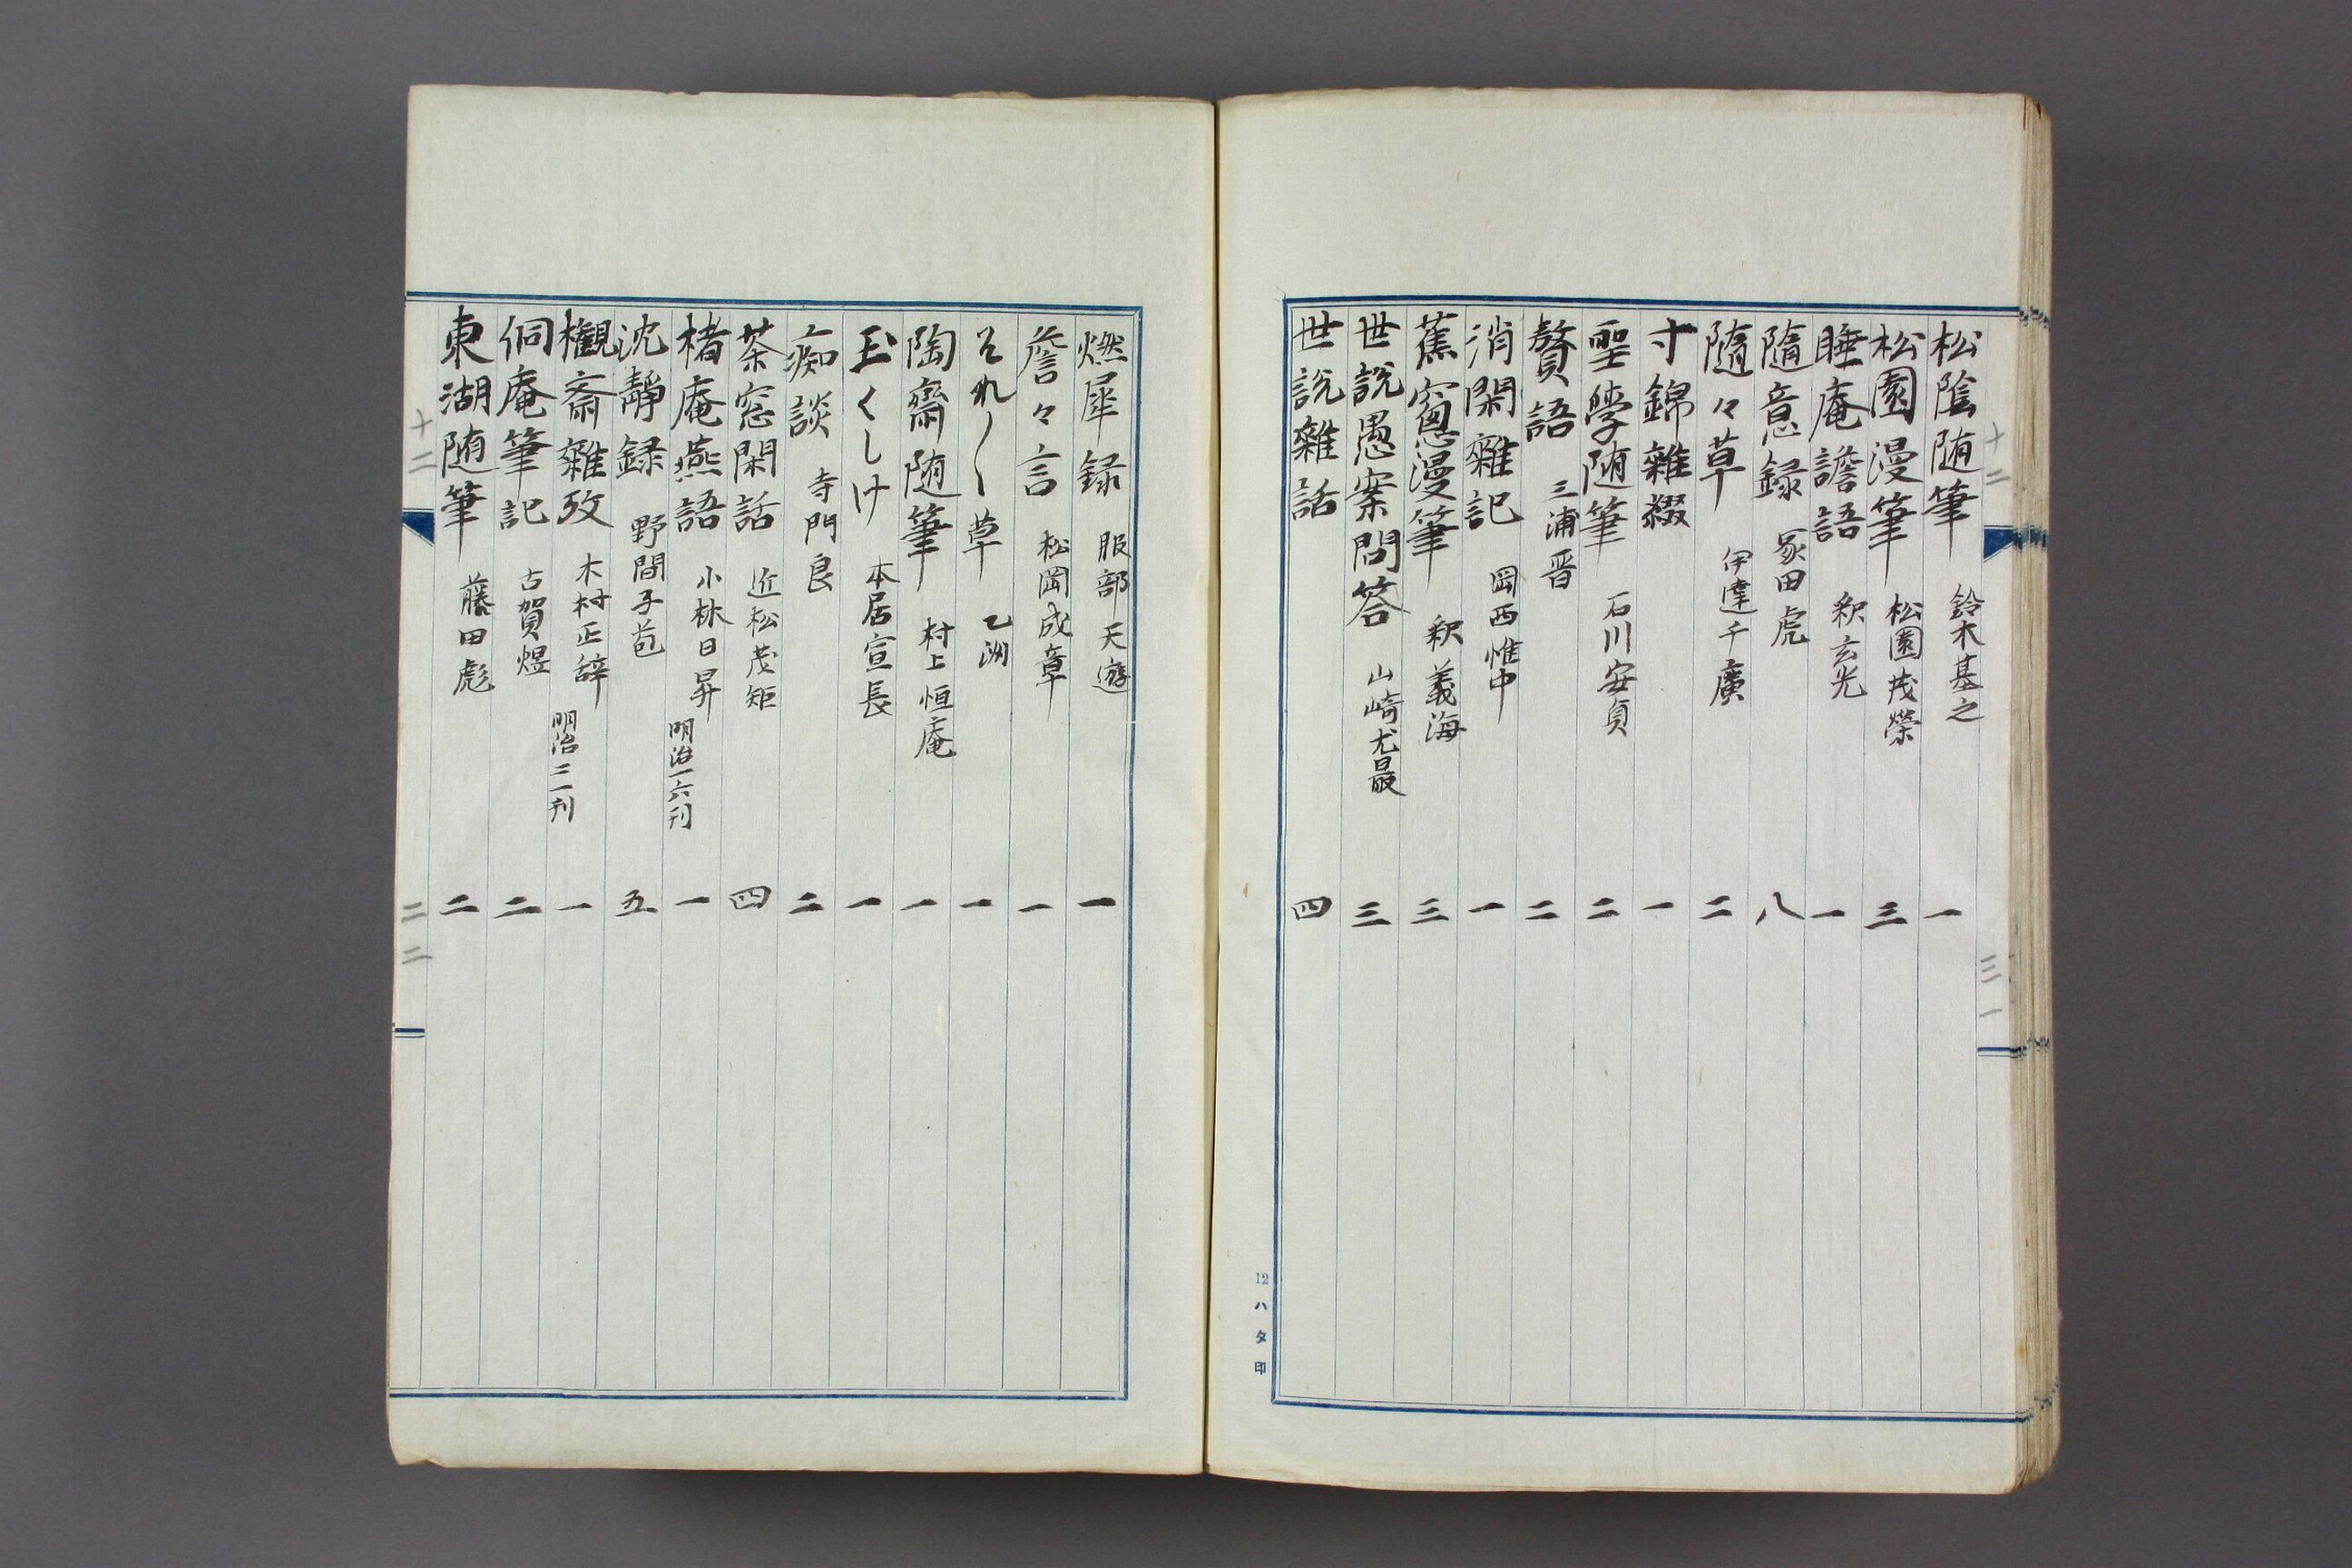 十二
三一
松陰随筆 鈴木基之 一
松園漫筆 松園茂榮 三
睡庵譫語 釈玄光 一
隨意録 冢田虎 八
隨々草 伊達千廣 二
寸錦雜綴 一
聖學随筆 石川安貞 二
贅語 三浦晋 二
消閑雜記 岡西惟中 一
蕉窻漫筆 釈義海 三
世説愚案問答 山崎尤最 三
世説雜話 四
12ハタ印
燃犀録 服部天遊 一
詹々言 松岡成章 一
それ〳〵草 乙洲 一
陶齋随筆 村上恒庵 一
玉くしけ 本居宣長 一
痴談 寺門良 二
茶窓閑話 近松茂矩 四
楮庵燕語 小林日昇 明治一六刊 一
沈靜録 野間子苞 五
欟斎雜攷 木村正辞 明治二一刊 一
侗庵筆記 古賀煜 二
東湖随筆 藤田彪 二
十二
二二